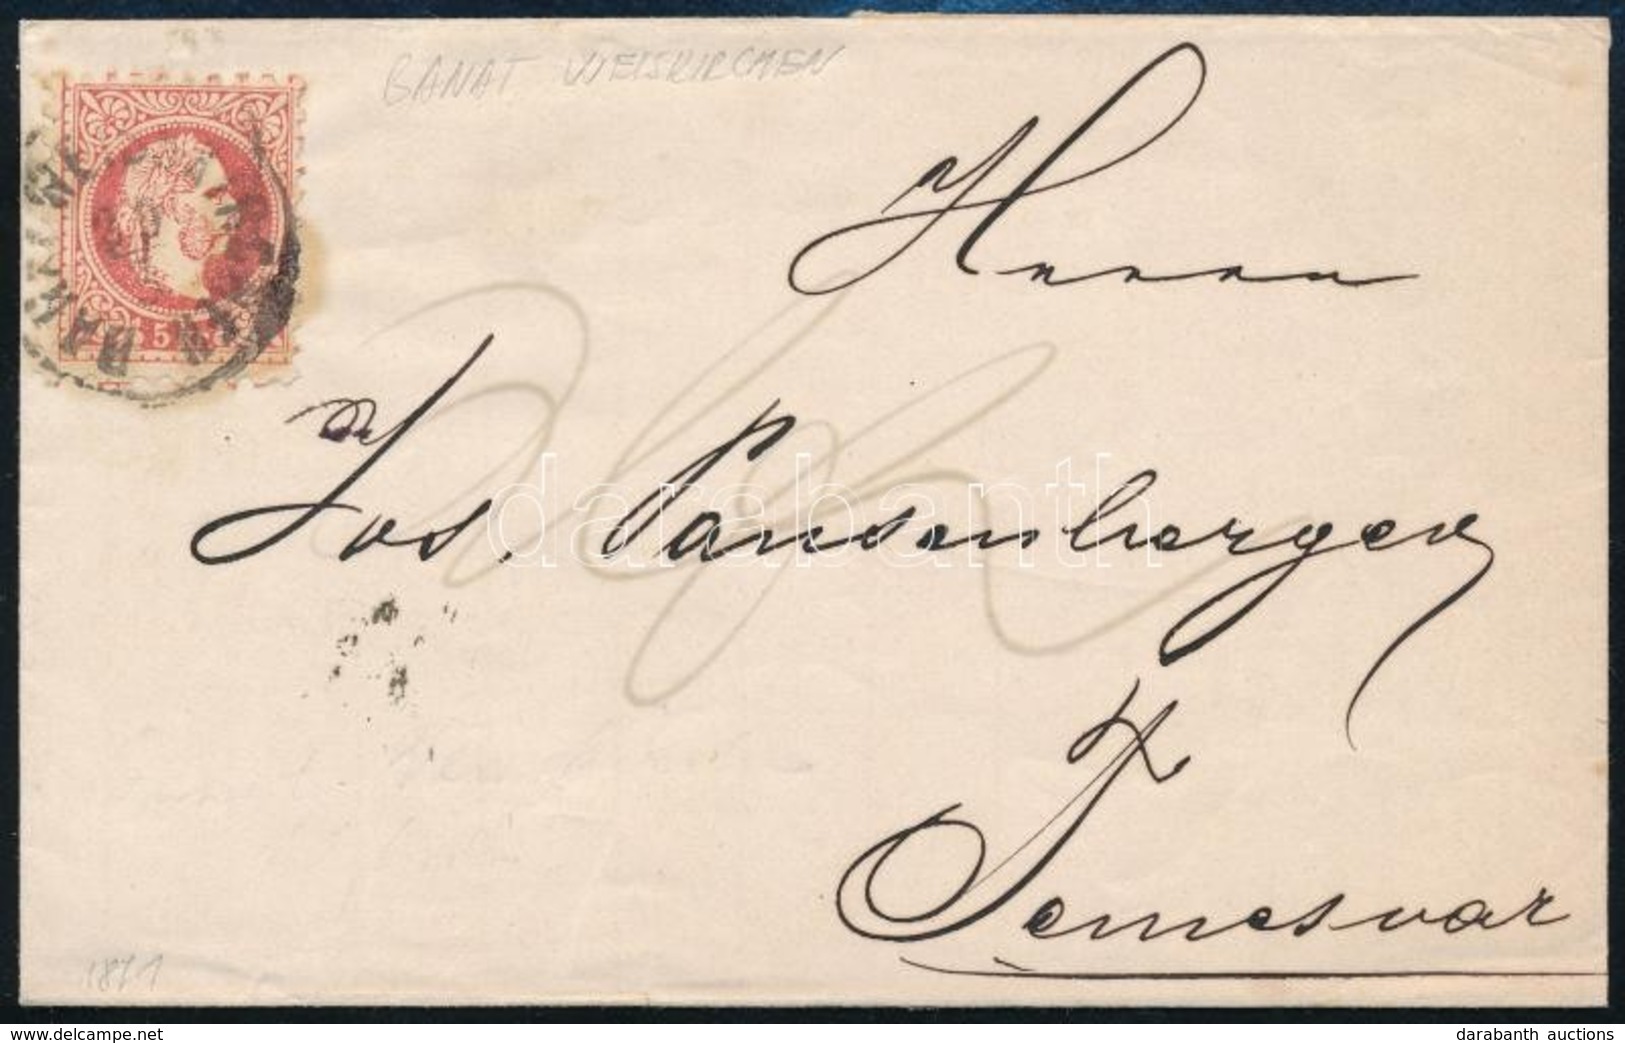 BANAT WEISKIRCHEN
5
Herrn
Jos. Pansenberger
Temesvar
1871
darabanth
darabanth auctions